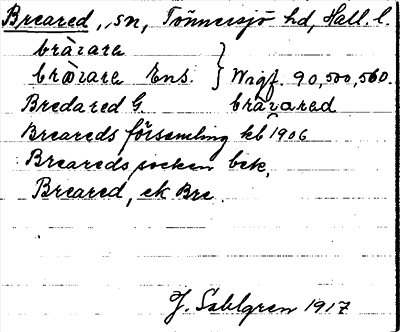 Breared, sn, Tönnersjö hd, Hall. l.
brå̀rara
brö̀rara Ens. } Wigf. 90,500,560.
Bredared G. brå̀rared
Breareds församling kb 1906
Breareds socken bek.
Breared, ek Bre.
J. Sahlgren 1917